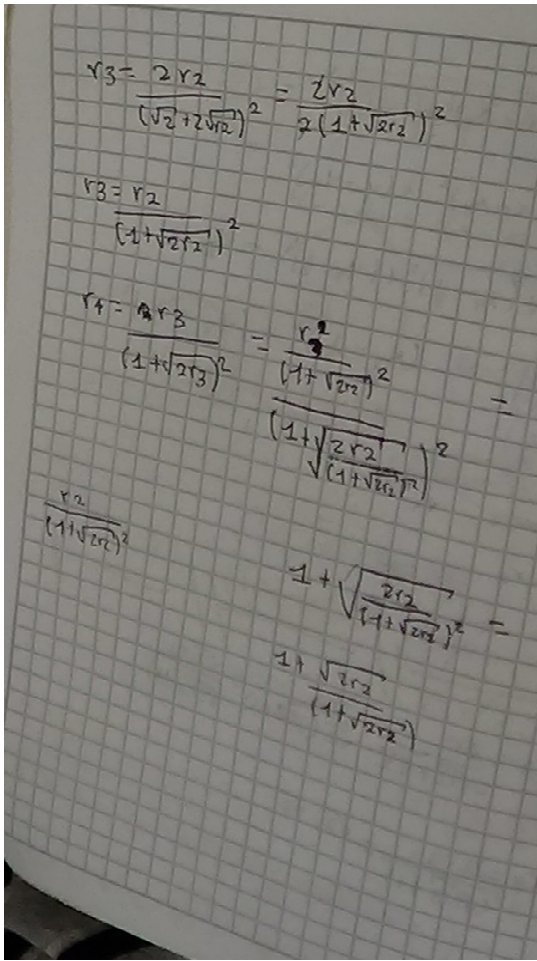 r3 = 2r2/(√2+2√r2)² = 2r2/2(1+√2r2)²
r3 = r2/(1+√2r2)²
r4 = r3/(1+√2r3)² = r2/(1+√2r2)²/(1+√(2r2/(1+√2r2)²))² =
r2/(1+√2r2)²
1+√(2r2/(1+√2r2)²) =
1+√2r2/(1+√2r2)